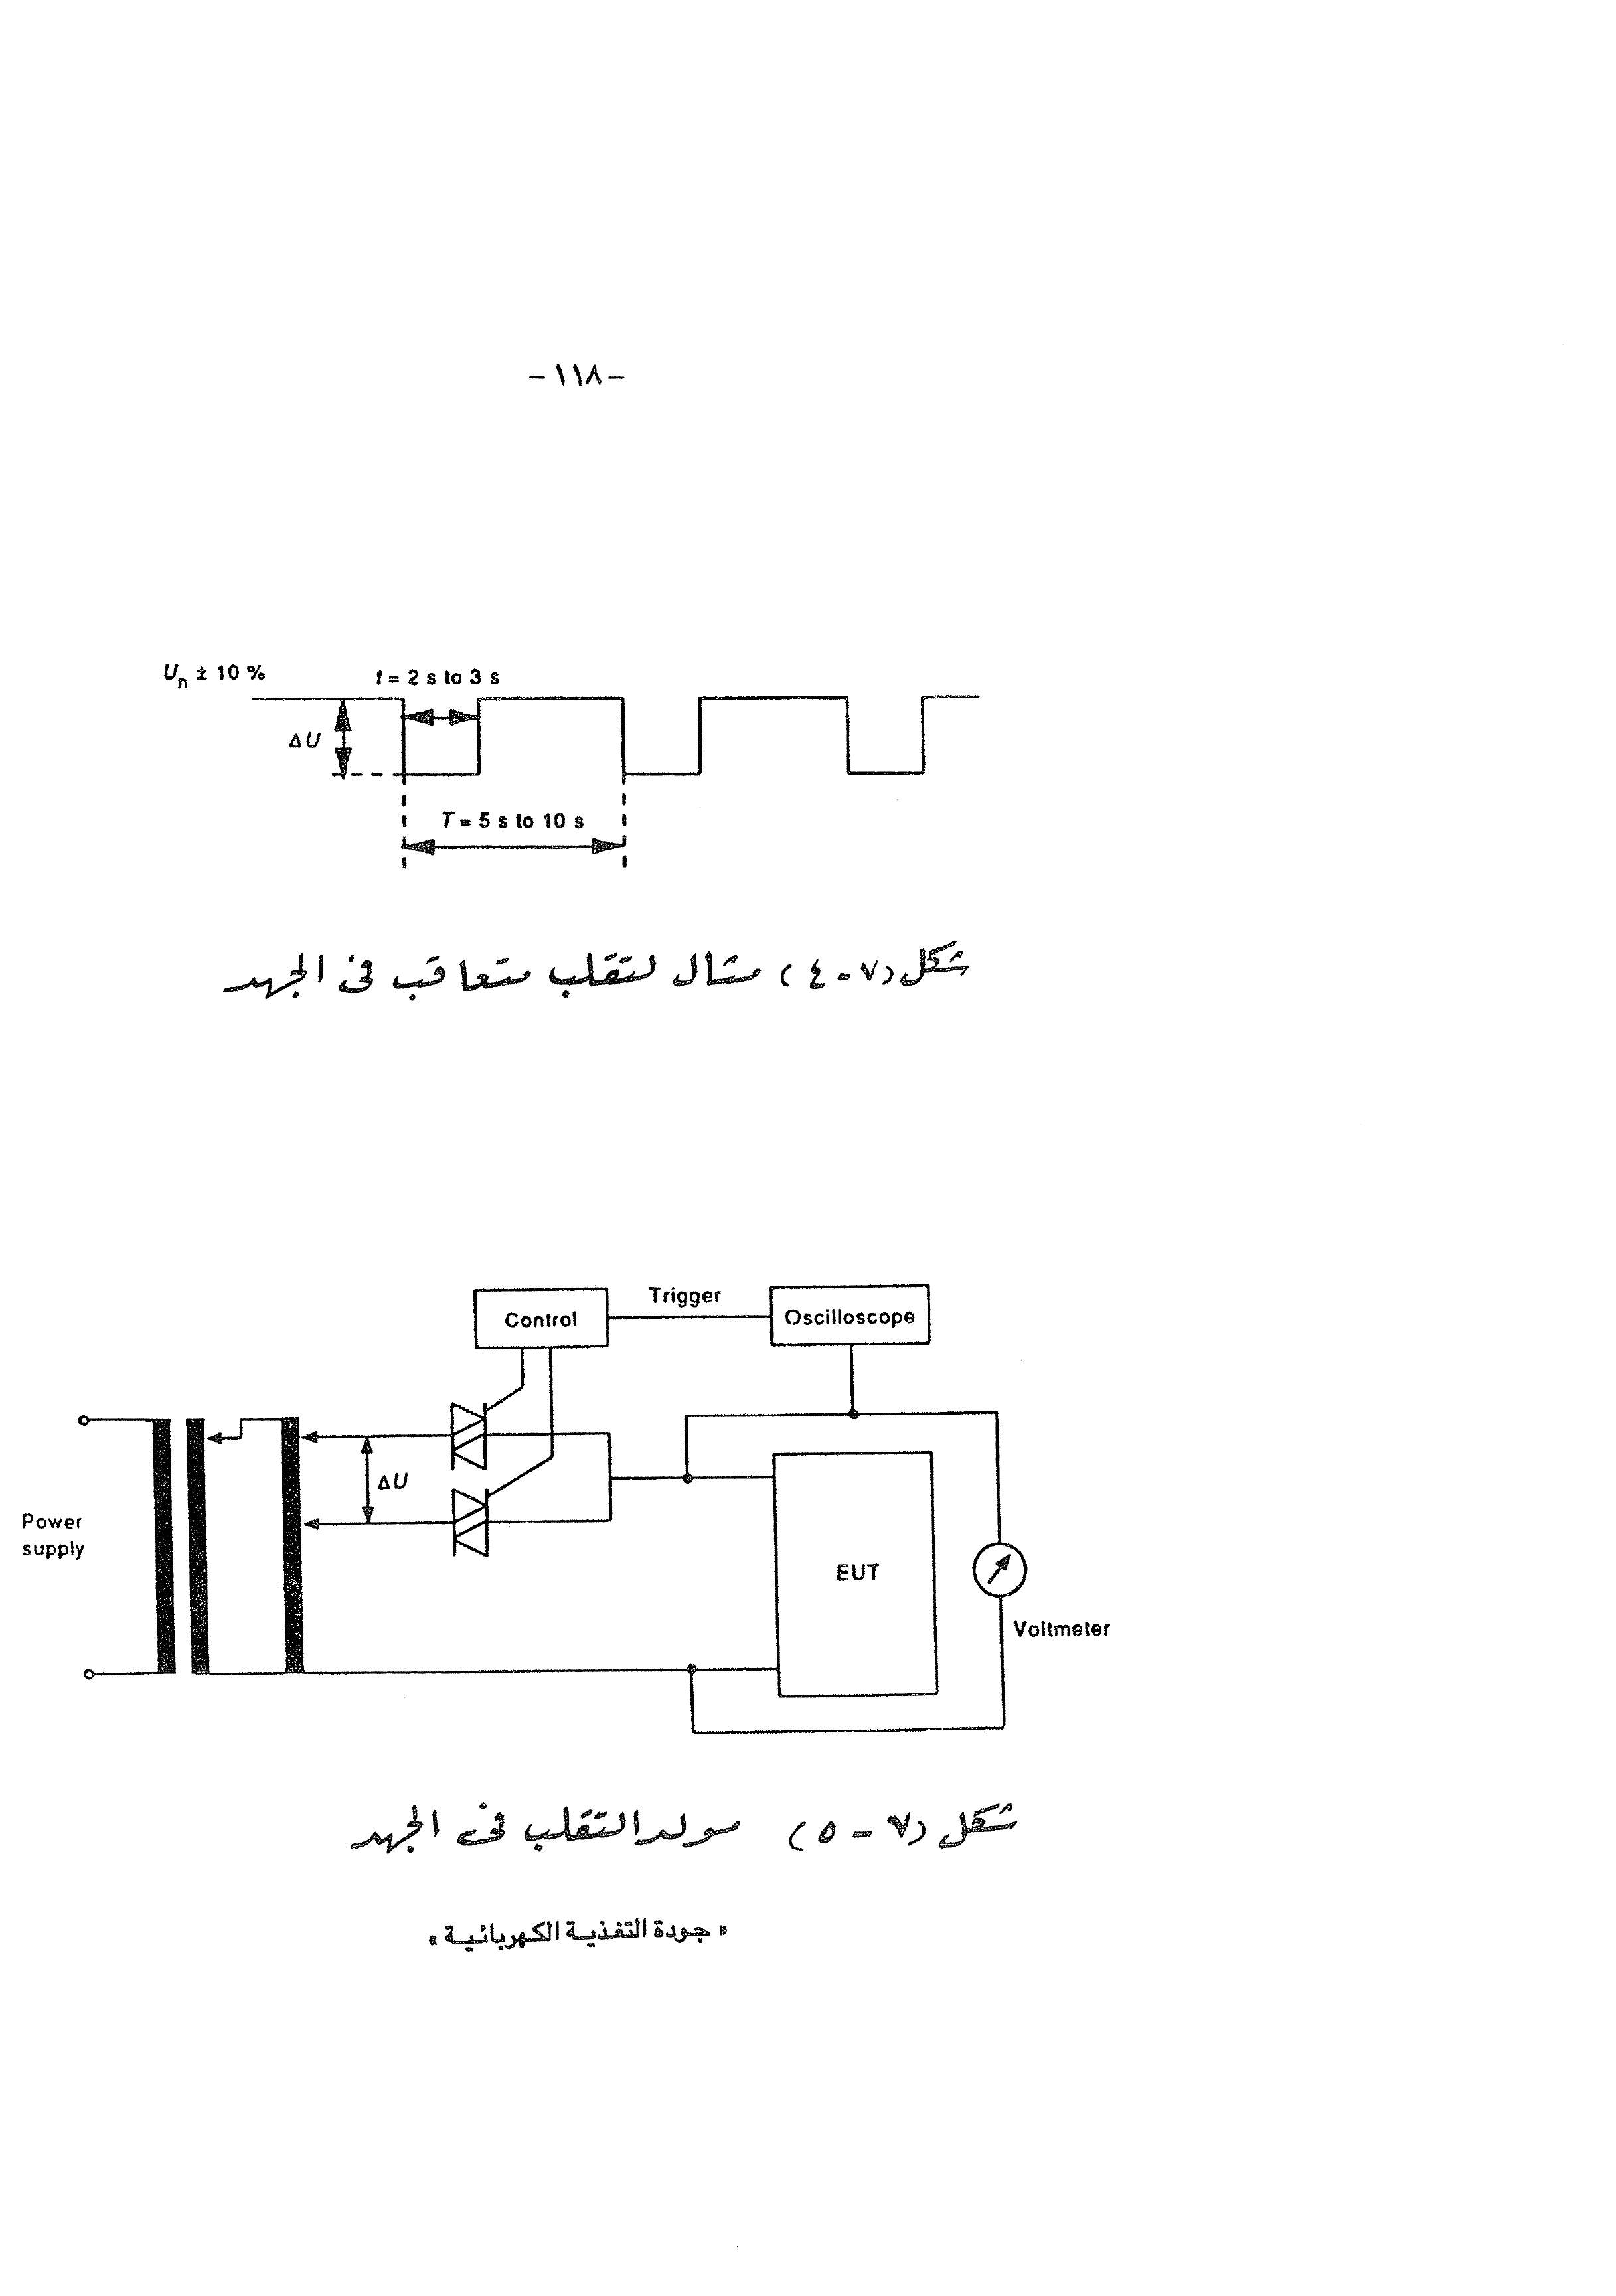 -١١٨-
Un ± 10 %
t = 2 s to 3 s
ΔU
T = 5 s to 10 s
شكل (٧-٤) مثال لتقلب متعاقب فى الجهد
Control
Trigger
Oscilloscope
ΔU
Power
supply
EUT
Voltmeter
شكل (٧-٥) مولد التقلب فى الجهد
« جودة التغذية الكهربائية »